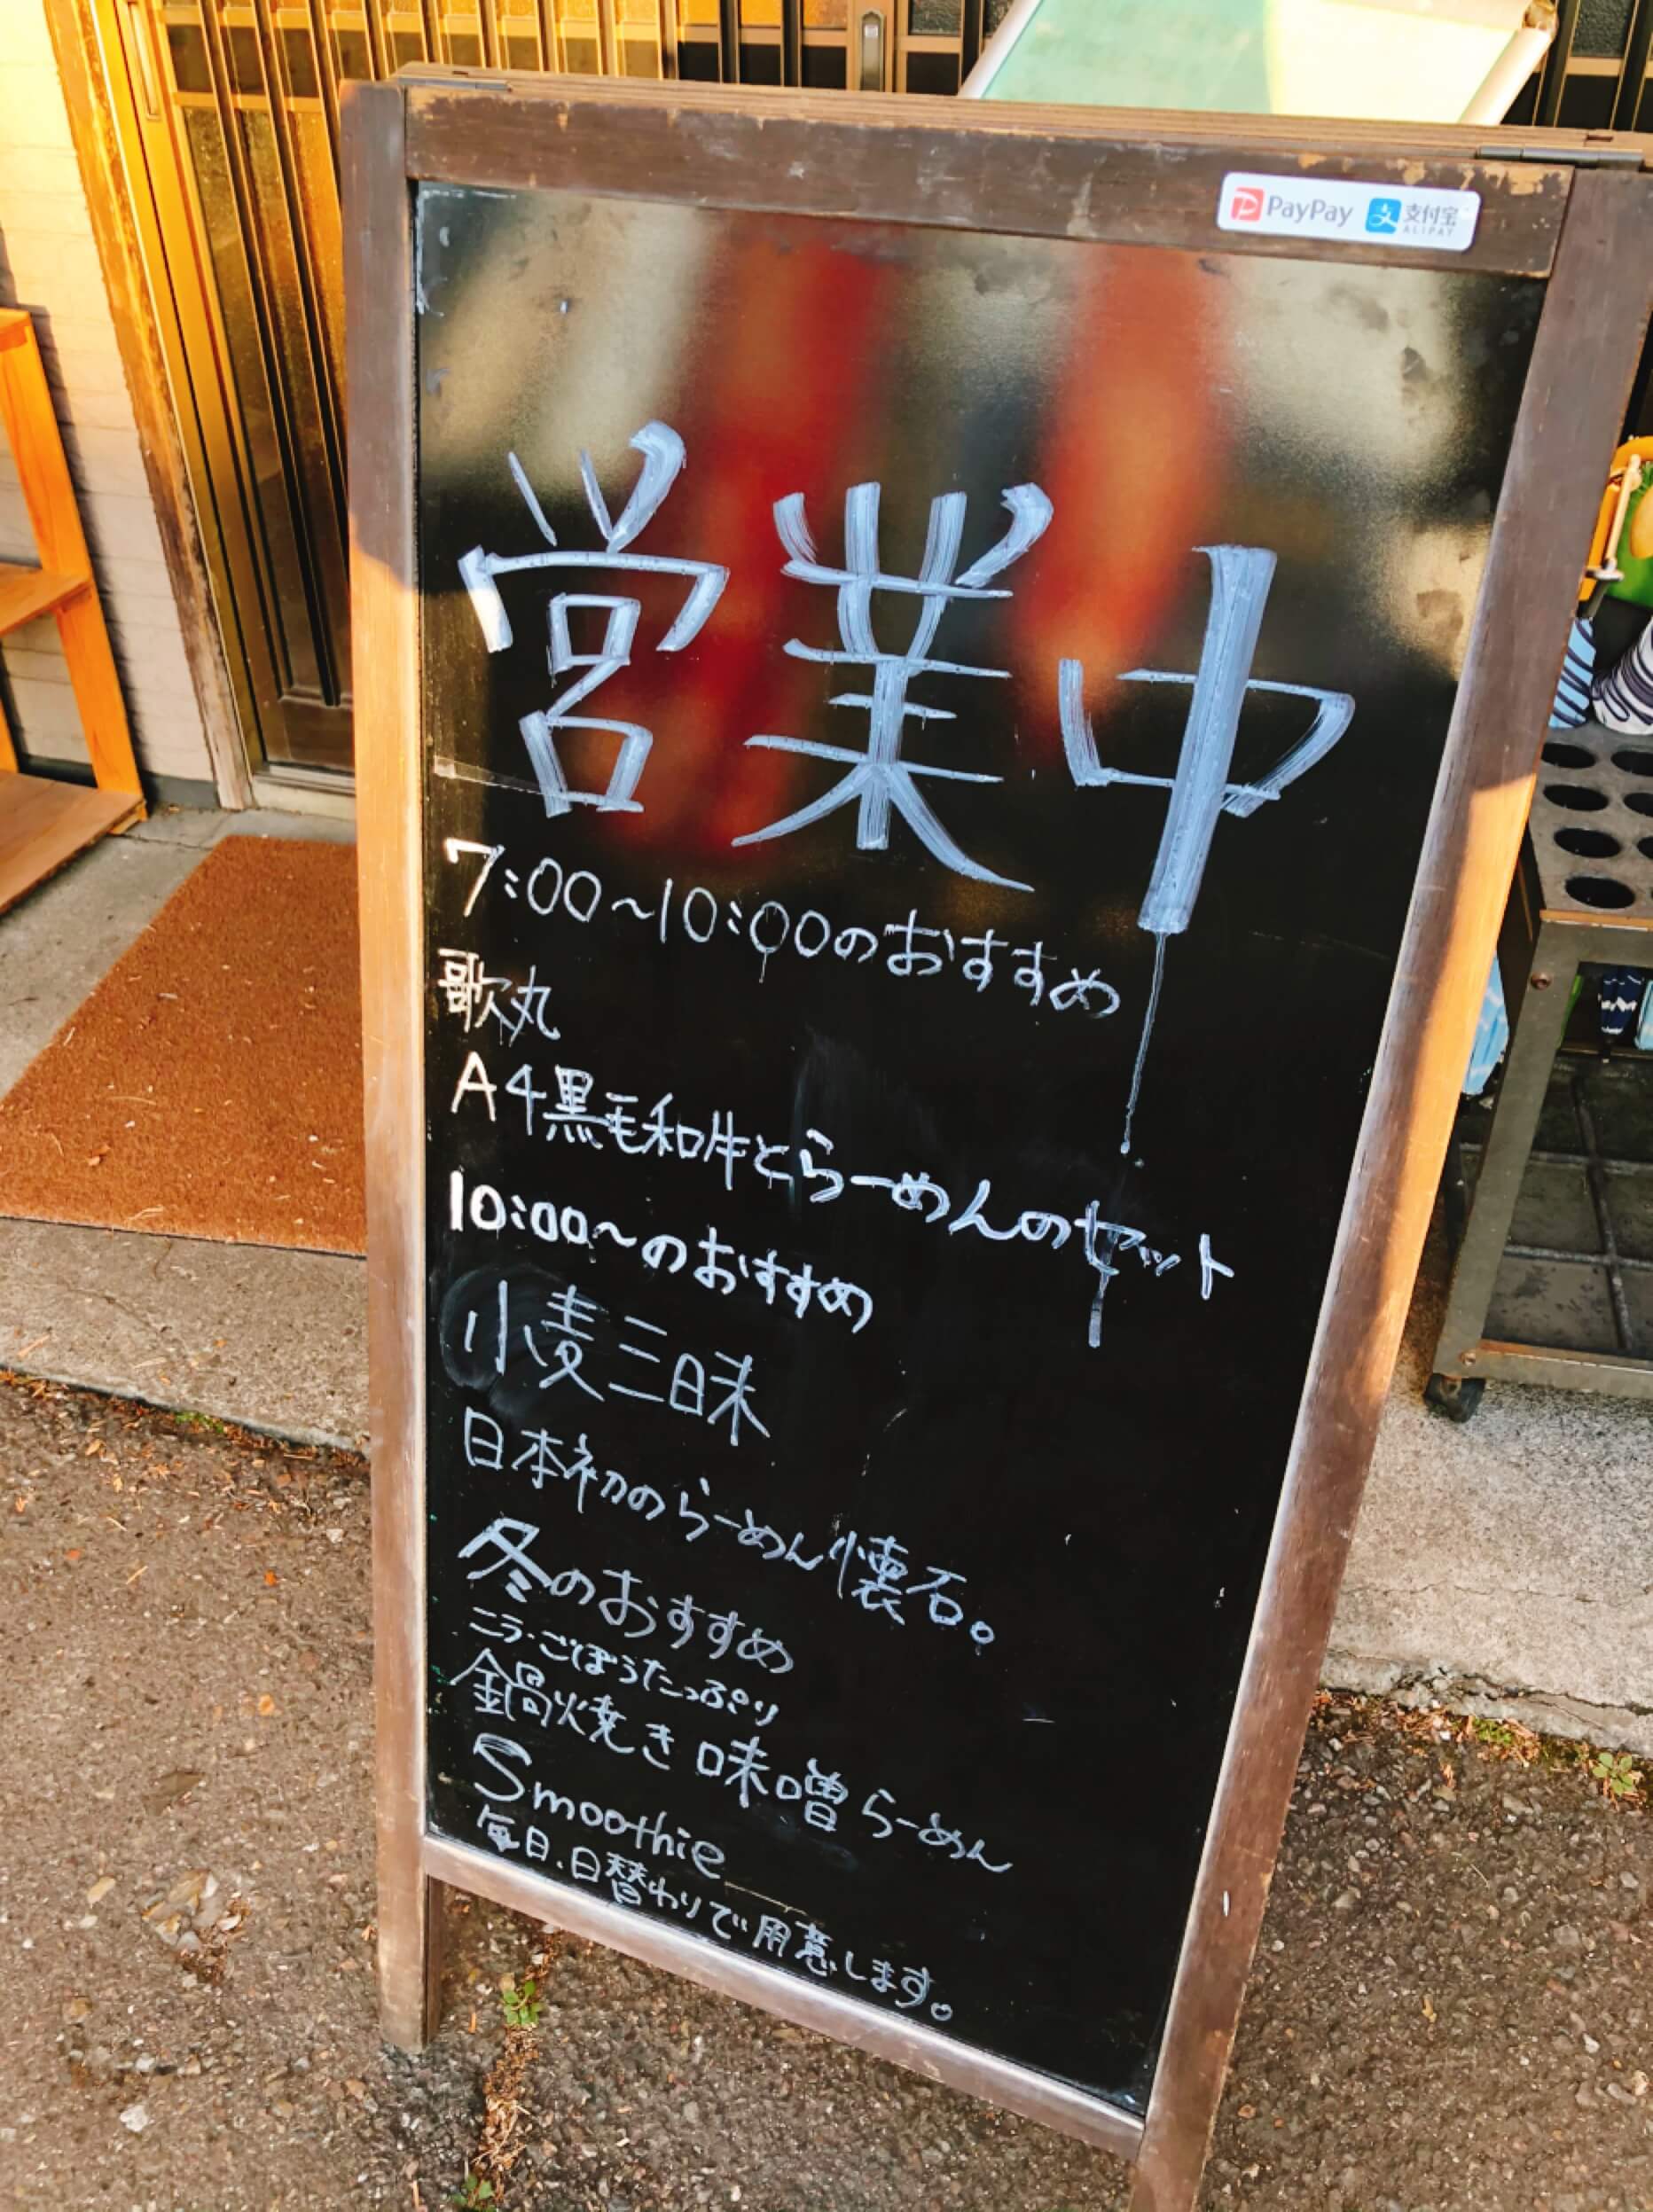 PayPay 支付宝
ALIPAY
営業中
7:00~10:00のおすすめ
歌丸
A4黒毛和牛とらーめんのセット
10:00~のおすすめ
小麦三昧
日本初のらーめん懐石。
冬のおすすめ
ニラ・ごぼうたっぷり
鍋焼き味噌らーめん
Smoothie
毎日、日替わりで用意します。